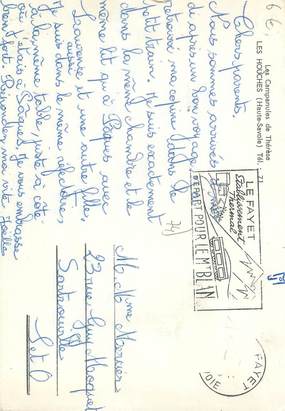 6 E
Les Campanules de Thérèse
LES HOUCHES (Haute-Savoie) Tél. 71
Chers parents,
Nous sommes arrivés
après un bon voyage
retrouvé ma copine dans le
petit train, je suis exactement
dans la même chambre et le
même lit qu'à Pâques avec
Laurence et une autre fille,
je suis dans le même réfectoire,
à la même table, juste à côté
où j'étais à Pâques. Je vous embrasse
bien fort. Répondez moi vite
LE FAYET
Etablissement
Thermal
DEPART POUR LE Mt BLANC
FAYET
74
M Mme
23 rue Guy Moquet
Sartrouville
S et O